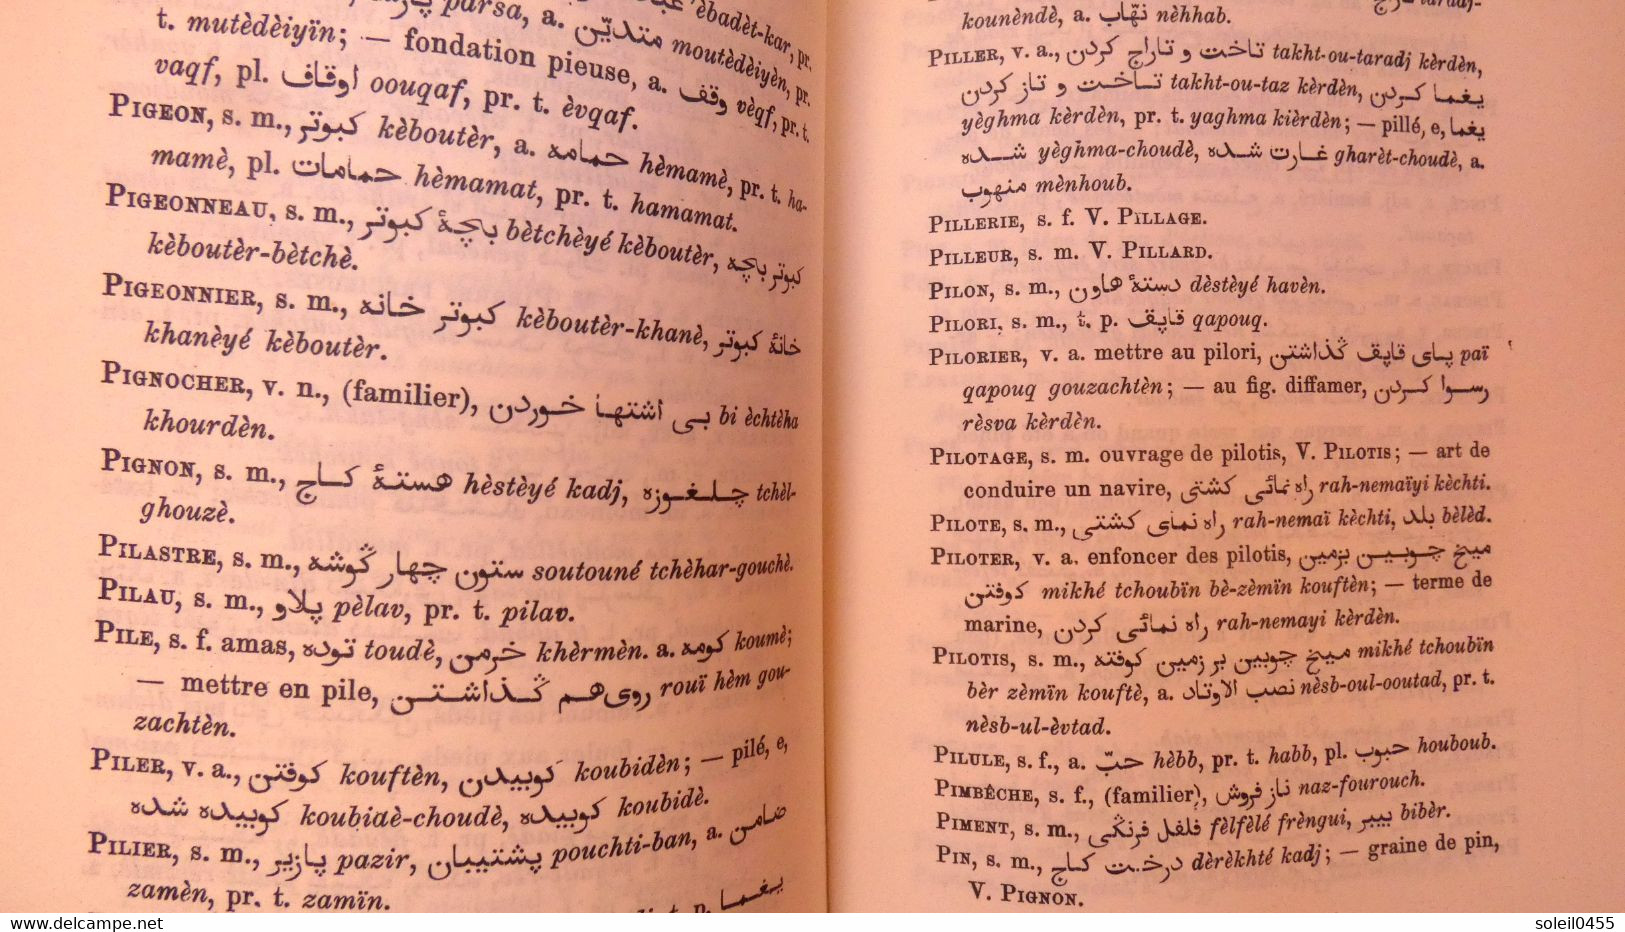 parsa, a. متدیّن moutèdèiyèn, pr.
t. mutèdèiyïn; — fondation pieuse, a. وقف vèqf, pr. t.
vaqf, pl. اوقاف oouqaf, pr. t. èvqaf.
PIGEON, s. m., کبوتر kèboutèr, a. حمامه hèmamè, pr. t. ha-
mamè, pl. حمامات hèmamat, pr. t. hamamat.
PIGEONNEAU, s. m., بچهٔ کبوتر bètchèyé kèboutèr, کبوتر بچه
kèboutèr-bètchè.
PIGEONNIER, s. m., کبوتر خانه kèboutèr-khanè, خانهٔ کبوتر
khanèyé kèboutèr.
PIGNOCHER, v. n., (familier), بی اشتها خوردن bi èchtèha
khourdèn.
PIGNON, s. m., هستهٔ کاج hèstèyé kadj, چلغوزه tchèl-
ghouzè.
PILASTRE, s. m., ستون چهار گوشه soutouné tchèhar-gouchè.
PILAU, s. m., پلاو pèlav, pr. t. pilav.
PILE, s. f. amas, توده toudè, خرمن khèrmèn. a. کومه koumè;
— mettre en pile, روی هم گذاشتن rouï hèm gou-
zachtèn.
PILER, v. a., کوفتن kouftèn, کوبیدن koubidèn; — pilé, e,
کوبیده شده koubidè-choudè, کوبیده koubidè.
PILIER, s. m., پازیر pazir, پشتیبان pouchti-ban, a. ضامن
zamèn, pr. t. zamïn.
kounèndè, a. نهّاب nèhhab.
PILLER, v. a., تاخت و تاراج کردن takht-ou-taradj kèrdèn,
تاخت و تاز کردن takht-ou-taz kèrdèn, یغما کردن
yèghma kèrdèn, pr. t. yaghma kièrdèn; — pillé, e, یغما
شده yèghma-choudè, غارت شده gharèt-choudè, a.
منهوب mènhoub.
PILLERIE, s. f. V. PÏLLAGE.
PILLEUR, s. m. V. PILLARD.
PILON, s. m., دستهٔ هاون dèstèyé havèn.
PILORI, s. m., t. p. قاپق qapouq.
PILORIER, v. a. mettre au pilori, پای قاپق گذاشتن paï
qapouq gouzachtèn; — au fig. diffamer, رسوا کردن
rèsva kèrdèn.
PILOTAGE, s. m. ouvrage de pilotis, V. PILOTIS; — art de
conduire un navire, راه نمائی کشتی rah-nemaïyi kèchti.
PILOTE, s. m., راه نمای کشتی rah-nemaï kèchti, بلد bèlèd.
PILOTER, v. a. enfoncer des pilotis, میخ چوبین بزمین
کوفتن mikhé tchoubïn bè-zèmïn kouftèn; — terme de
marine, راه نمائی کردن rah-nemayi kèrdèn.
PILOTIS, s. m., میخ چوبین بر زمین کوفته mikhé tchoubïn
bèr zèmïn kouftè, a. نصب الاوتاد nèsb-oul-ooutad, pr. t.
nèsb-ul-èvtad.
PILULE, s. f., a. حبّ hèbb, pr. t. habb, pl. حبوب houboub.
PIMBÊCHE, s. f., (familier), ناز فروش naz-fourouch.
PIMENT, s. m., فلفل فرنگی fèlfèlé frèngui, بیبر bibèr.
PIN, s. m., درخت کاج dèrèkhté kadj; — graine de pin,
V. PIGNON.
soleil0455